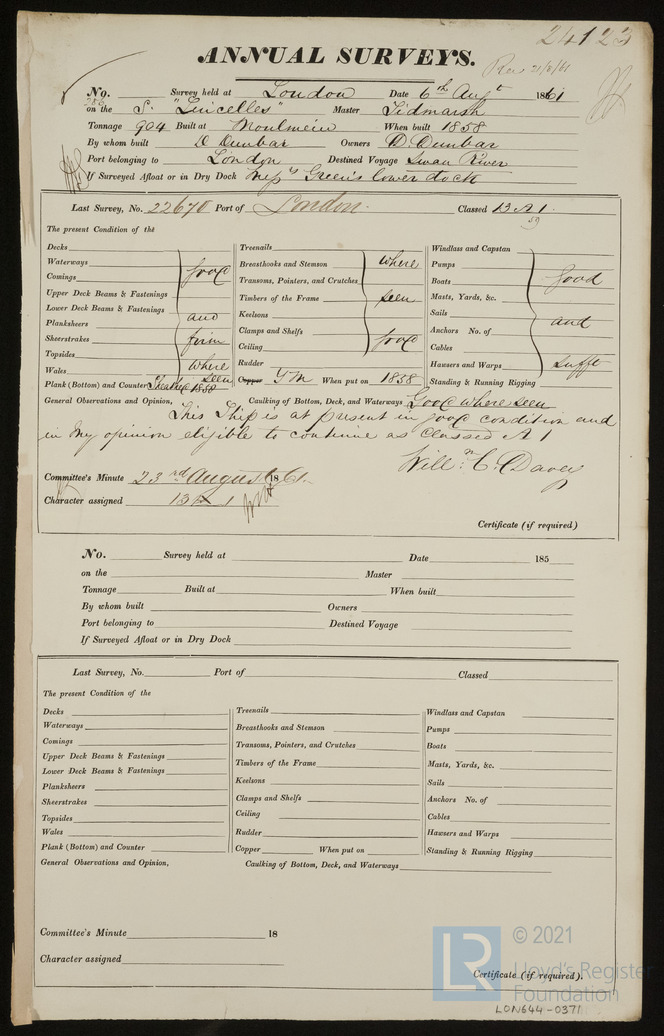 24123
ANNUAL SURVEYS.
Rec 21/8/61
No. Survey held at London Date 6th Augt 1861
on the S. "Lincelles" Master Tidmarsh
Tonnage 904 Built at Moulmein When built 1858
By whom built D Dunbar Owners D Dunbar
Port belonging to London Destined Voyage Swan River
If Surveyed Afloat or in Dry Dock Green's lower dock
Last Survey, No. 22670 Port of London. Classed 13 A 1
59
The present Condition of the
Decks
Waterways
Comings
Upper Deck Beams & Fastenings
Lower Deck Beams & Fastenings
Planksheers
Sheerstrakes
Topsides
Wales
good
and
firm
where
seen
Plank (Bottom) and Counter Sheathed 1858
Treenails
Breasthooks and Stemson
Transoms, Pointers, and Crutches
Timbers of the Frame
Keelsons
Clamps and Shelfs
Ceiling
where
seen
good
Rudder
Copper YM When put on 1858
Windlass and Capstan
Pumps
Boats
Masts, Yards, &c.
Sails
Anchors No. of
Cables
Hawsers and Warps
Standing & Running Rigging
good
and
sufft
General Observations and Opinion, Caulking of Bottom, Deck, and Waterways Good where seen
This Ship is at present in good condition and
in my opinion eligible to continue as Classed A 1
Willm C Davey
Committee's Minute 23rd August 1861.
Character assigned 13 A 1
Certificate (if required)
No. Survey held at Date 185
on the Master
Tonnage Built at When built
By whom built Owners
Port belonging to Destined Voyage
If Surveyed Afloat or in Dry Dock
Last Survey, No. Port of Classed
The present Condition of the
Decks
Waterways
Comings
Upper Deck Beams & Fastenings
Lower Deck Beams & Fastenings
Planksheers
Sheerstrakes
Topsides
Wales
Plank (Bottom) and Counter
Treenails
Breasthooks and Stemson
Transoms, Pointers, and Crutches
Timbers of the Frame
Keelsons
Clamps and Shelfs
Ceiling
Rudder
Copper When put on
Windlass and Capstan
Pumps
Boats
Masts, Yards, &c.
Sails
Anchors No. of
Cables
Hawsers and Warps
Standing & Running Rigging
General Observations and Opinion, Caulking of Bottom, Deck, and Waterways
Committee's Minute 18
Character assigned
Certificate (if required).
LR
© 2021
Lloyd's Register
Foundation
LON644-0371